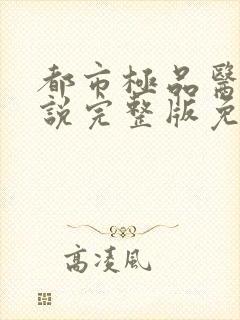 都市極品醫
說完整版免
高凌風